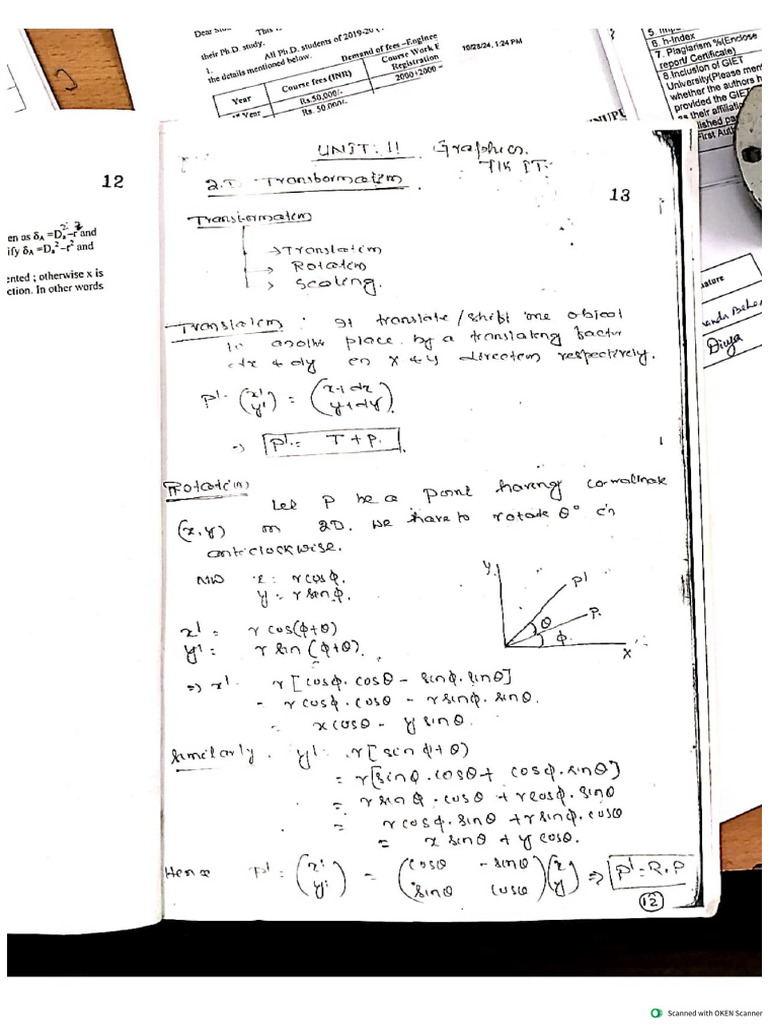 Dear Stud
This is
their Ph.D. study.
1. All Ph.D. students of 2019-20 (
the details mentioned below.
Demand of fees –Enginee
Year
Course fees (INR)
Course Work E
Registration
Rs.50,000/-
2000+2000 =
Year
Rs. 50,000/-
10/28/24, 1:24 PM
6. h-Index
7. Plagiarism %(Enclose
report/ Certificate)
8.Inclusion of GIET
University(Please ment
whether the authors h
provided the GIET
as their affiliati
lished pa
First Auth
ature
Divya
12
en as δA =Da²–r² and
ify δA =Da²–r² and
ented ; otherwise x is
ction. In other words
UNIT: II Graphics.
7th IT:
2.D Transformation
13
Transformation
→ Translation
→ Rotation
→ Scaling.
Translation : It translate/shift one object
to another place by a translating factor
dx & dy on x & y direction respectively.
P' (x' y') = (x+dx y+dy)
⇒ P' = T + P.
Rotation
Let P be a point having co-ordinate
(x, y) on 2D. We have to rotate θ° in
anticlockwise.
Now x = r cosφ.
y = r sinφ.
y
P'
P.
θ
φ.
x
x' = r cos(φ+θ)
y' = r sin (φ+θ).
⇒ x' r[cosφ. cosθ - sinφ. sinθ]
- r cosφ. cosθ - r sinφ. sinθ.
= x cosθ - y sinθ.
Similarly. y' = r[sin φ+θ)
= r[sinφ. cosθ + cosφ. sinθ]
= r sinφ. cosθ + r cosφ. sinθ
= r cosφ. sinθ + r sinφ. cosθ
= x sinθ + y cosθ.
Hence P' = (x' y') = (cosθ -sinθ sinθ cosθ)(x y) ⇒ P' = R.P
12
Scanned with OKEN Scanner